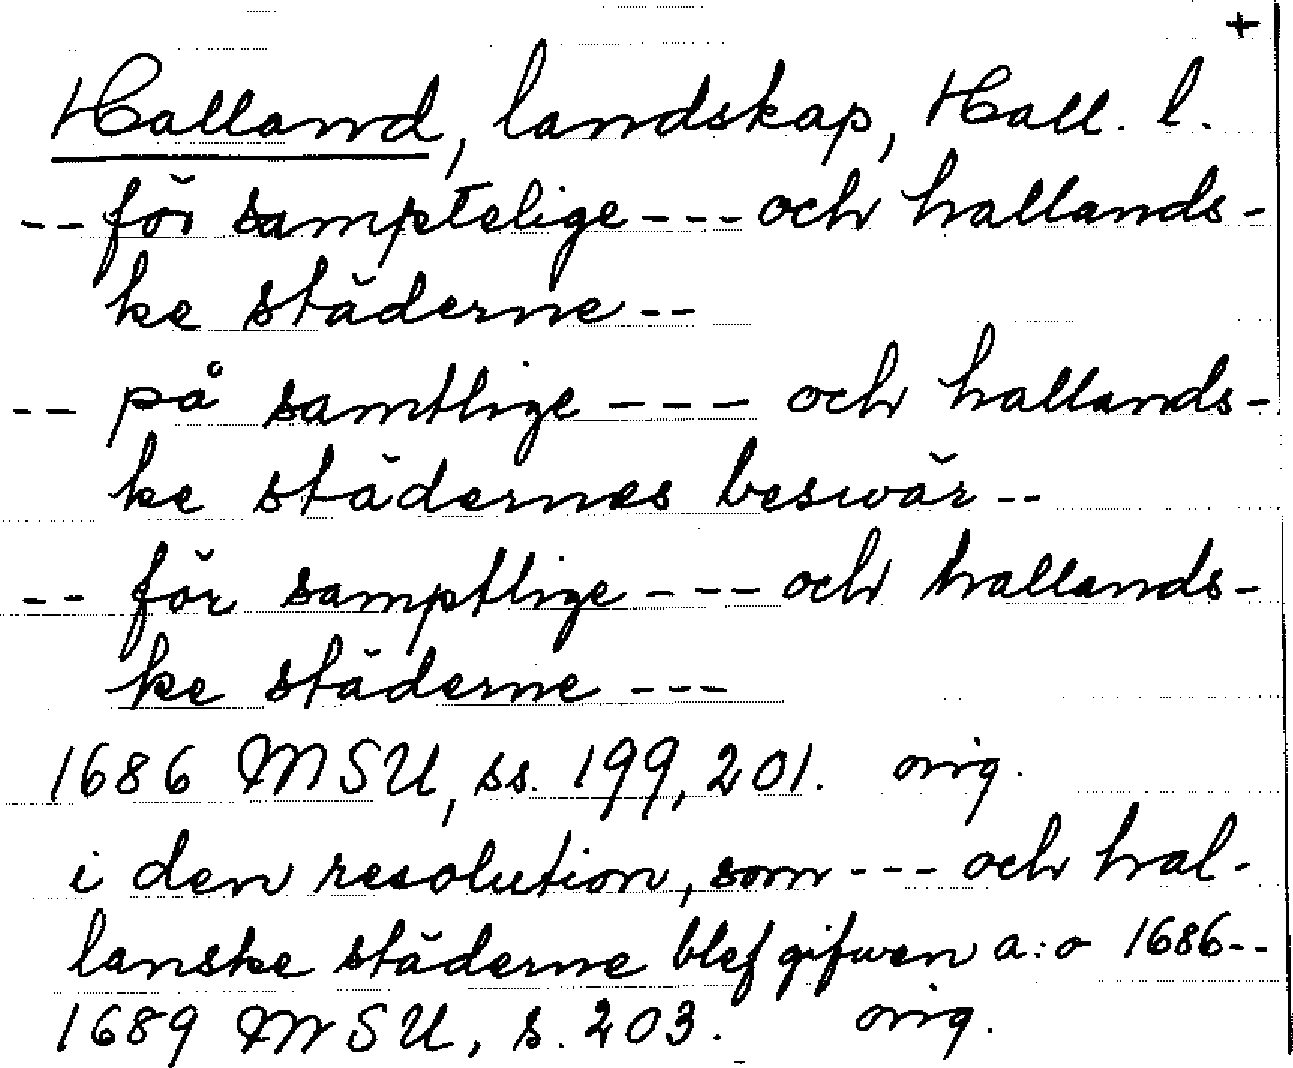 +
Halland, landskap, Hall. l.
-- för samptelige --- och hallands-
ke städerne --
-- på samtlige --- och hallands-
ke städernes beswär --
-- för samptlige --- och hallands-
ke städerne ---
1686 MSU, ss. 199, 201. orig.
i den resolution, som --- och hal-
lanske städerne blef gifwen a:o 1686--
1689 MSU, s. 203. orig.